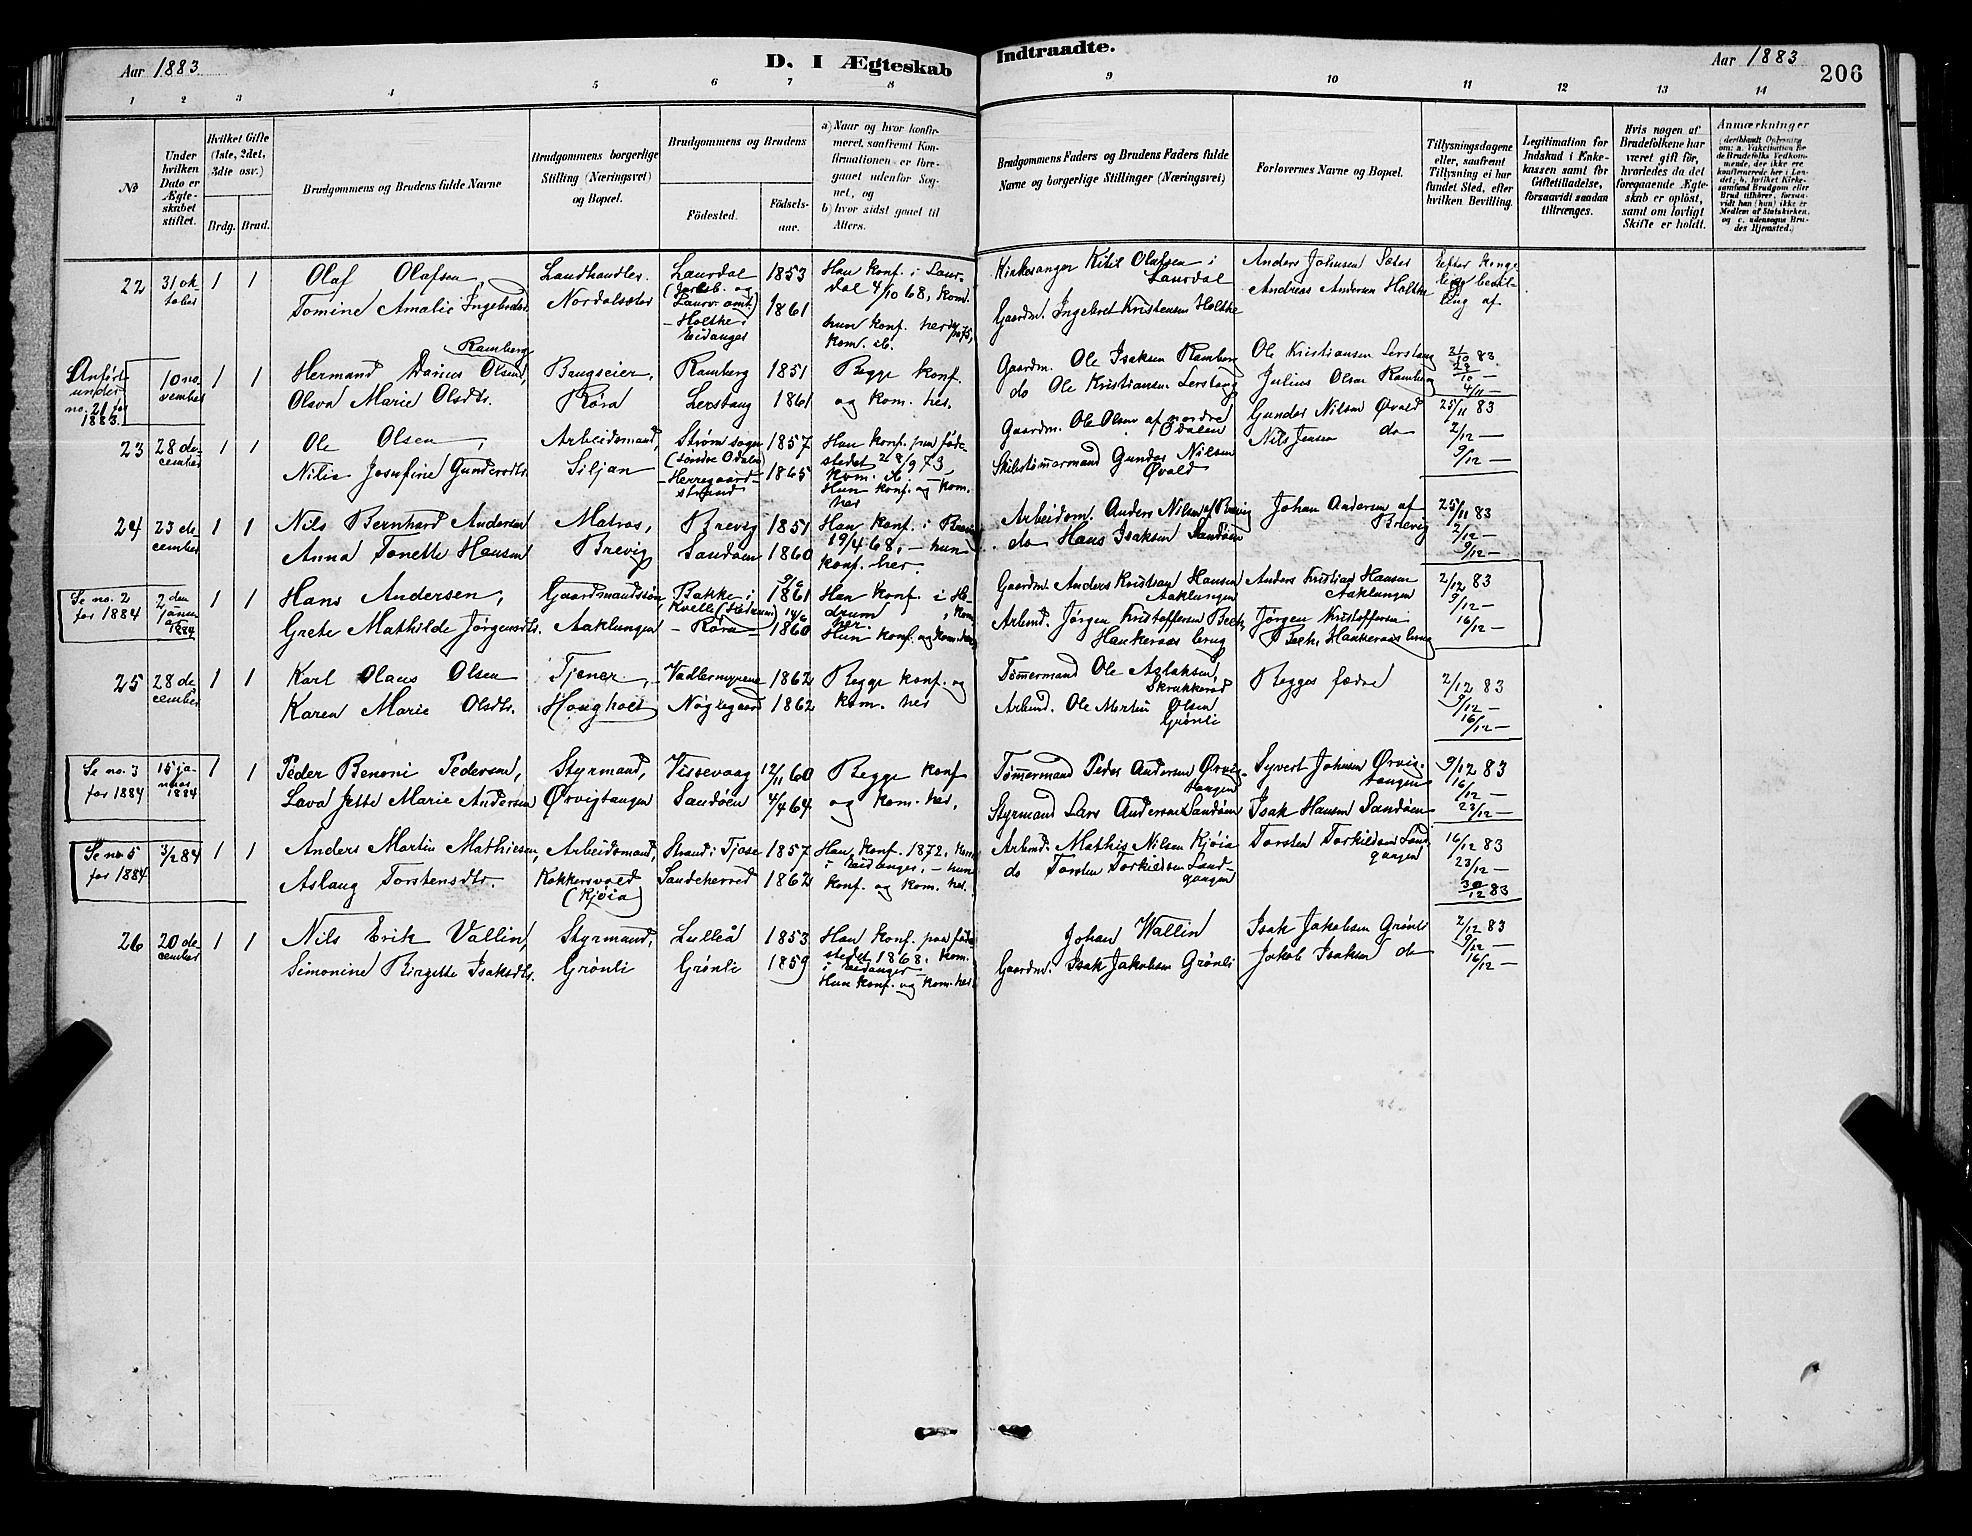 Aar 1883
D. I Ægteskab Indtraadte.
Aar 1883
206
1 2 3 4 5 6 7 8 9 10 11 12 13 14
No
Under hvilken Dato er Ægteskabet stiftet.
Hvilket Gifte (1ste, 2det, 3die osv.)
Brdg. Brud.
Brudgommens og Brudens fulde Navne
Brudgommens borgerlige Stilling (Næringsvei) og Bopæl.
Brudgommens og Brudens
Fødested.
Fødselsaar.
a) Naar og hvor konfirmeret, saafremt Konfirmationen er foregaaet udenfor Sognet, og
b) hvor sidst gaaet til Alters.
Brudgommens Faders og Brudens Faders fulde Navne og borgerlige Stillinger (Næringsvei)
Forlovernes Navne og Bopæl.
Tillysningsdagene eller, saafremt Tillysning ei har fundet Sted, efter hvilken Bevilling.
Legitimation for Indskud i Enkekassen samt for Giftetilladelse, forsaavidt saadan tiltrænges.
Hvis nogen af Brudefolkene har været gift før, hvorledes da det foregaaende Ægteskab er opløst, samt om lovligt Skifte er holdt.
Anmærkninger (deriblandt Oplysning om: a. Vakcination for de Brudefolks Vedkommende, der ikke ere konfirmerede her i Landet; b. hvilket Kirkesamfund Brudgom eller Brud tilhører, forsaavidt han (hun) ikke er Medlem af Statskirken, og c. udensogns Brudes Hjemsted.)
22 31 oktober 1 1 Olaf Olafsen, Landhandler. Laurdal 1853 Han konf. i Laurdal 4/10 68, kom. Kirkesanger Kitil Olafsen i Laurdal Anders Johnsen Sæter Efter Kongelig bevilling af
Tomine Amalie Ingebretsdtr. Nordalseter Holthe i Eidanger 1861 hun konf. her kom. ib. Gaardm. Ingebret Kristensen Holthe Andreas Andersen Holthe
Anført under no. 21 for 1883. 10 november 1 1 Hermand Darius Olsen Ramberg, Brugseier, Ramberg 1851 Begge konf. Gaardm. Ole Isaksen Ramberg Ole Kristiansen Lerstang 21/10 83
Olava Marie Olsdtr. Røra Lerstang 1861 og kom. her. do Ole Kristiansen Lerstang Julius Olsen Ramberg 28/10 — 4/11 —
23 28 december 1 1 Ole Olsen, Arbeidsmand, Strøm sogn (søndre Odalen) 1857 Han konf. paa fødestedet 28/9 73, kom. ib. Gaardm. Ole Olsen af nordre Odalen Gunder Nilsen Øvald 25/11 83
Nilia Josefine Gundersdtr. Siljan Herregaardstrand 1865 Hun konf. og kom. her Skibstømmermand Gunder Nilsen Øvald Nils Jensen do 2/12 — 9/12 —
24 23 december 1 1 Nils Bernhard Andersen Matros, Brevig 1851 Han konf. i Brevig 19/4 68, — hun Arbeidsm. Anders Nilsen af Brevig Johan Andersen af Brevig 25/11 83
Anna Tonette Hansen Brevig Sandøen 1860 konf. her. do Hans Isaksen Sandøen 2/12 — 9/12 —
Se no. 2 for 1884 2den januar 1884 1 1 Hans Andersen, Gaardmandssøn Bakke i Kvelle (Hedrum) 9/6 1861 Han konf. i Hedrum, kom her. Gaardm. Anders Kristian Hansen Aaklungen Anders Kristian Hansen Aaklungen 2/12 83
Grete Mathilde Jørgensdtr. Aaklungen Røra 14/6 1860 Hun konf. og kom her Arbmd. Jørgen Kristoffersen Beck, Hankeraas brug Jørgen Kristoffersen Beck, Hankeraas brug 9/12 — 16/12 —
25 28 december 1 1 Karl Olaus Olsen Tjener, Vadlemyrene 1862 Begge konf. og Tømmermand Ole Aslaksen, Skrukkerød Begges fædre 2/12 83
Karen Marie Olsdtr. Houghoet Nøglegaard 1862 kom. her Arbmd. Ole Martin Olsen Grønli 9/12 — 16/12 —
Se no. 3 for 1884 15 januar 1884 1 1 Peder Benoni Pedersen, Styrmand, Vissevaag 12/11 60 Begge konf Tømmermand Peder Andersen Ørvigtangen Syvert Johnsen Ørvigtangen 9/12 83
Lava Jette Marie Andersen Ørvigtangen Sandøen 4/4 64 og kom. her. Styrmand Lars Andersen Sandøen Isak Hansen Sandøen 16/12 — 23/12 —
Se no 5 for 1884 3/2 84 1 1 Anders Martin Mathiesen, Arbeidsmand, Strand i Tjose 1857 Han konf. 1872, kom i Eidanger, — hun Arbmd. Mathis Nilsen Kjøia Torsten Torkildsen Landgangen 16/12 83
Aslaug Torstensdtr. Kokkersvold (Kjøia) Sandeherred 1862 konf. og kom. her. do Torsten Torkildsen Landgangen 23/12 — 30/12 83
26 20 december 1 1 Nils Erik Vallin, Styrmand, Lulleå 1853 Han konf. paa fødestedet 1868, kom. i Eidanger Johan Wallin Isak Jakobsen Grønli 2/12 83
Simonine Birgitte Isaksdtr. Grønli Grønli 1859 Hun konf. og kom. her. Gaardm. Isak Jakobsen Grønli Jakob Isaksen do 9/12 — 16/12 —